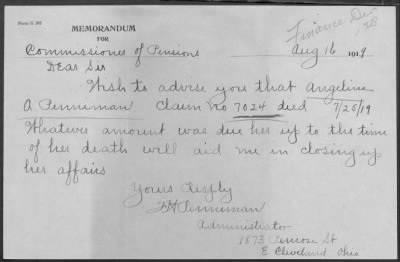 Form G 101
MEMORANDUM
FOR
Finance Div
Commissioner of Pensions Aug 16 1919
Dear Sir
Wish to advise you that Angeline
A Penniman Claim No 7024 died 7/25/19
Whatever amount was due her up to the time
of her death will aid me in closing up
her affairs
Yours Respfly
Penniman
Administrator
1873 Penrose St
E Cleveland Ohio